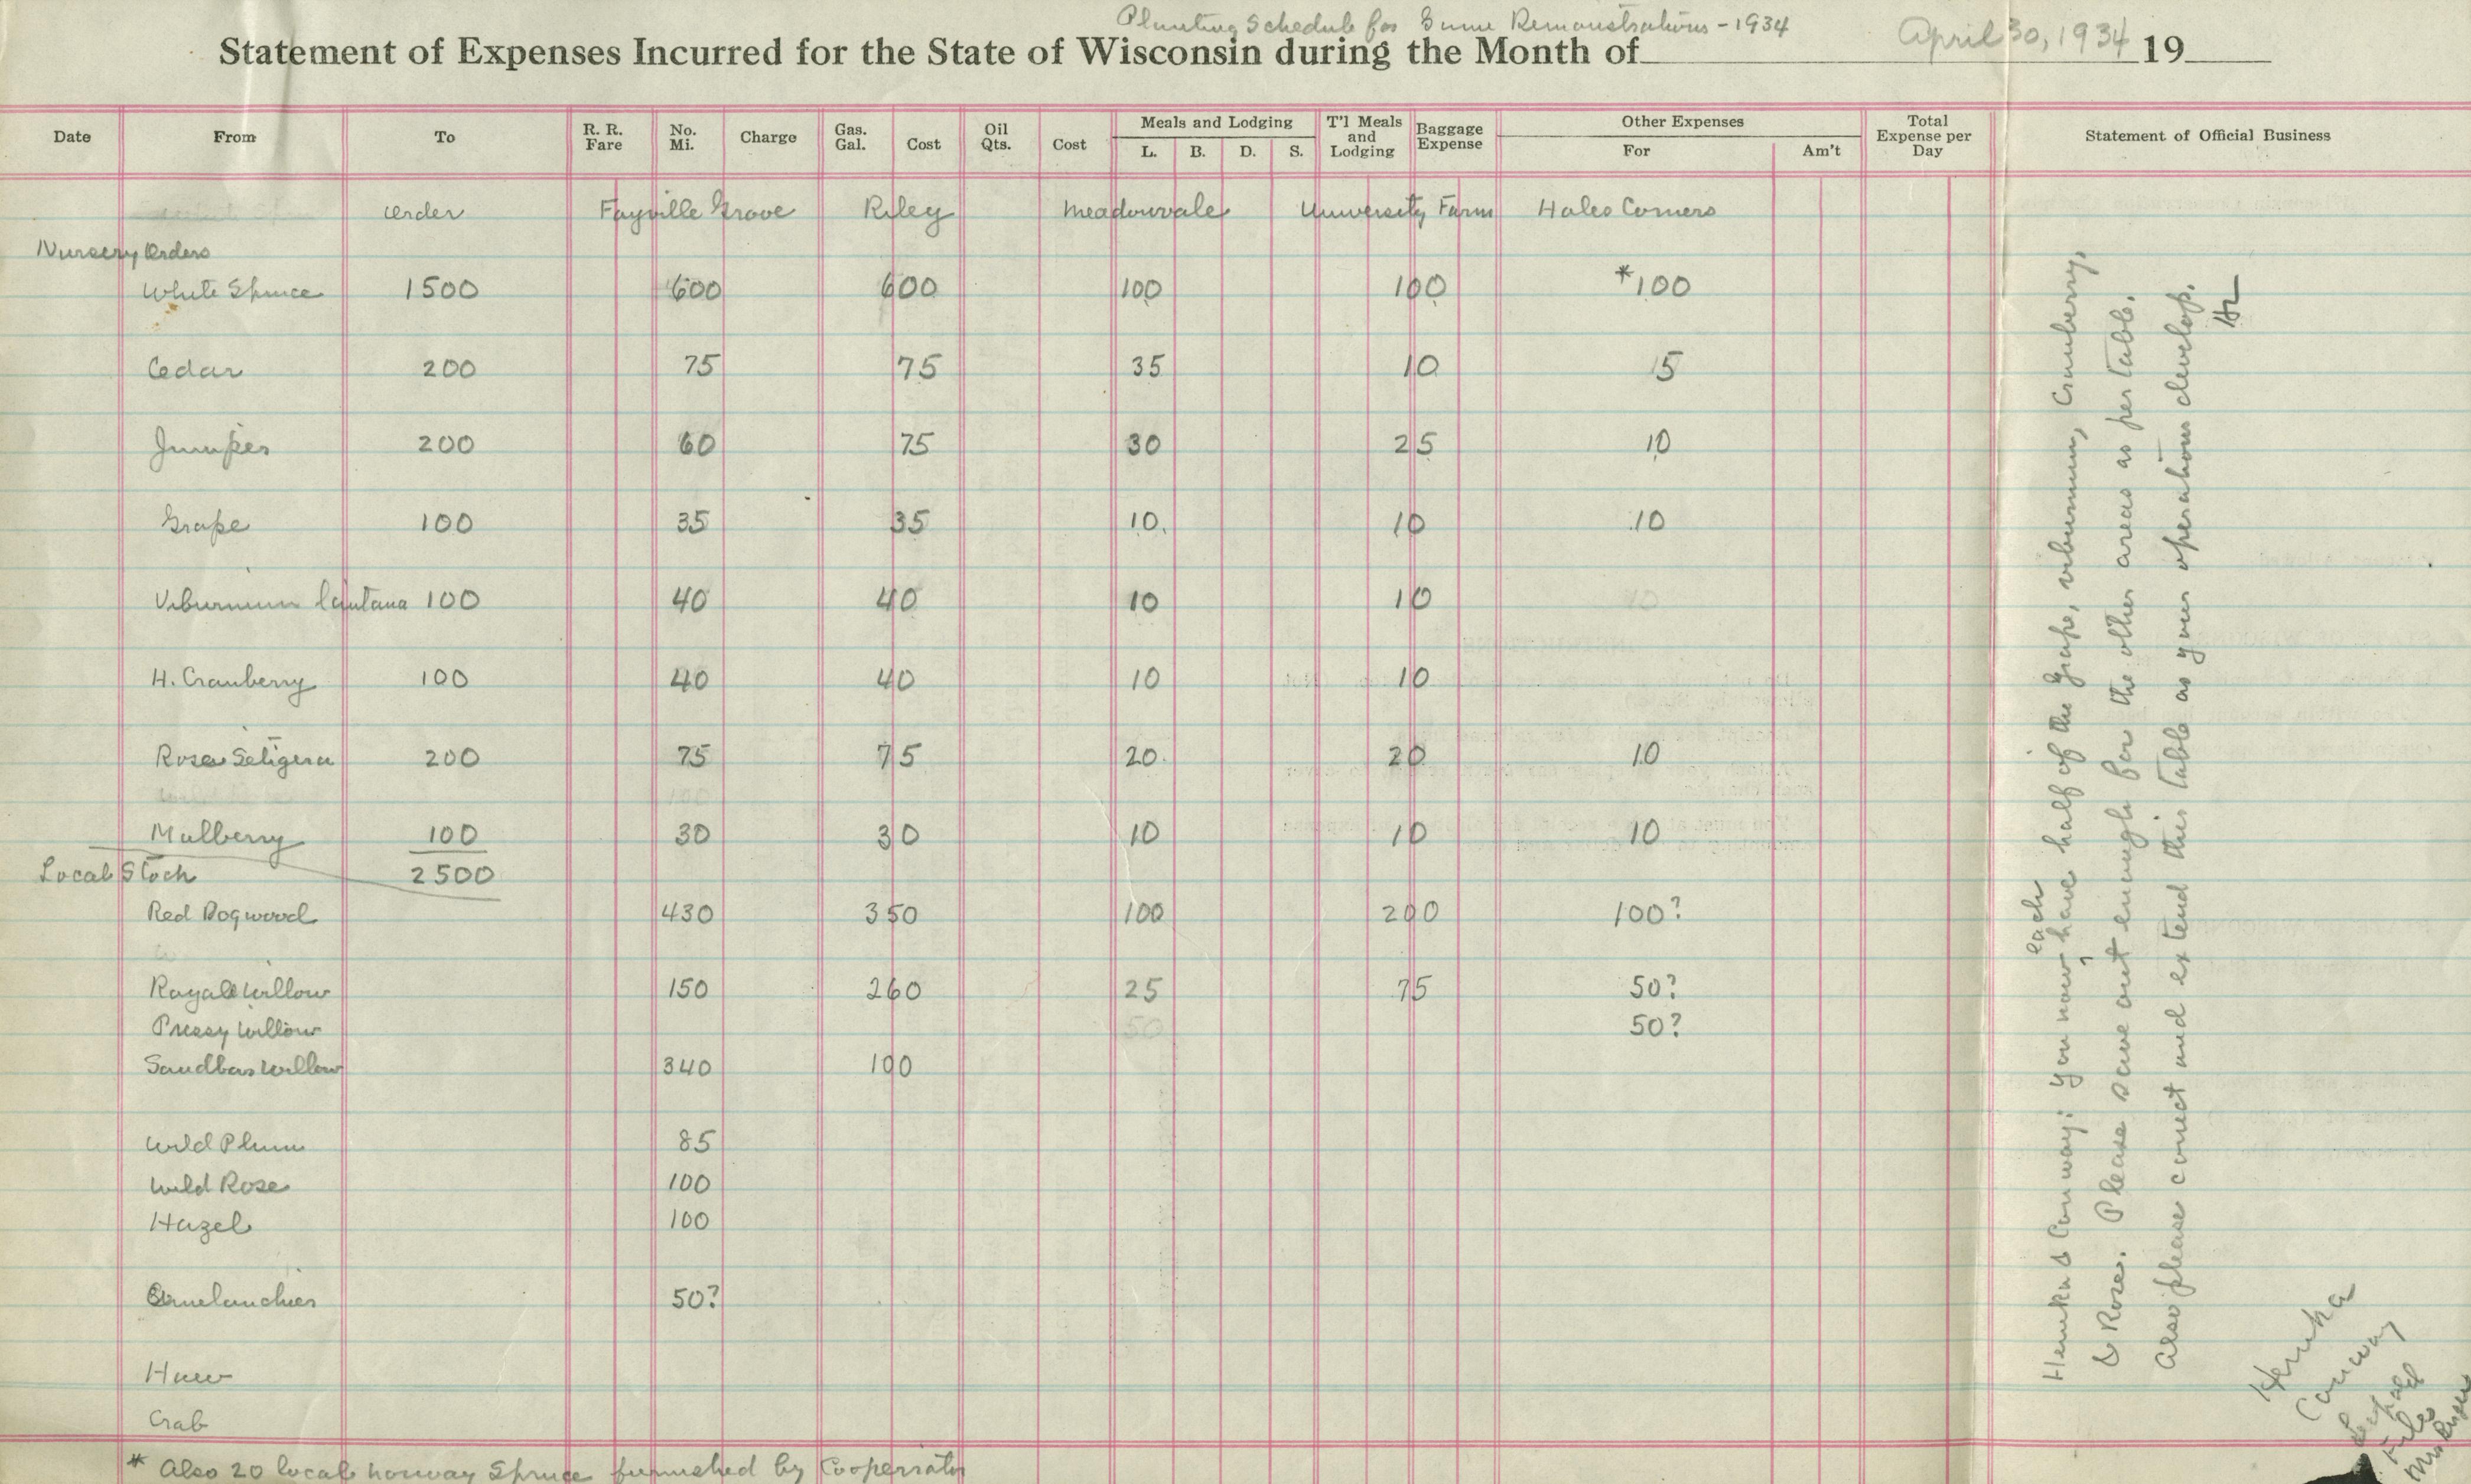 Planting Schedule for Game Demonstrations - 1934
Statement of Expenses Incurred for the State of Wisconsin during the Month of April 30, 1934 19
Date From To R. R. Fare No. Mi. Charge Gas. Gal. Cost Oil Qts. Cost Meals and Lodging L. B. D. S. T'l Meals and Lodging Baggage Expense Other Expenses For Am't Total Expense per Day Statement of Official Business
Order Fayville Grove Riley Meadowvale University Farm Hales Corners
Nursery Orders
White Spruce 1500 600 600 100 100 *100
Cedar 200 75 75 35 10 5
Juniper 200 60 75 30 25 10
Grape 100 35 35 10 10 10
Viburnum lantana 100 40 40 10 10
H. Cranberry 100 40 40 10 10
Rosa Setigera 200 75 75 20 20 10
Mulberry 100 30 30 10 10 10
Local Stock 2500
Red Dogwood 430 350 100 200 100?
Royal Willow 150 260 25 75 50?
Pussy Willow 50 50?
Sandbar Willow 340 100
Wild Plum 85
Wild Rose 100
Hazel 100
Amelanchier 50?
Haw
Crab
* Also 20 local norway Spruce furnished by Cooperator
Hemka & Conway: You now each have half of the Grape, viburnum, Cranberry,
& Rose. Please save out enough for the other areas as per table.
Also please correct and extend this table as your operations develop.
Hemka
Conway
Leopold
Files